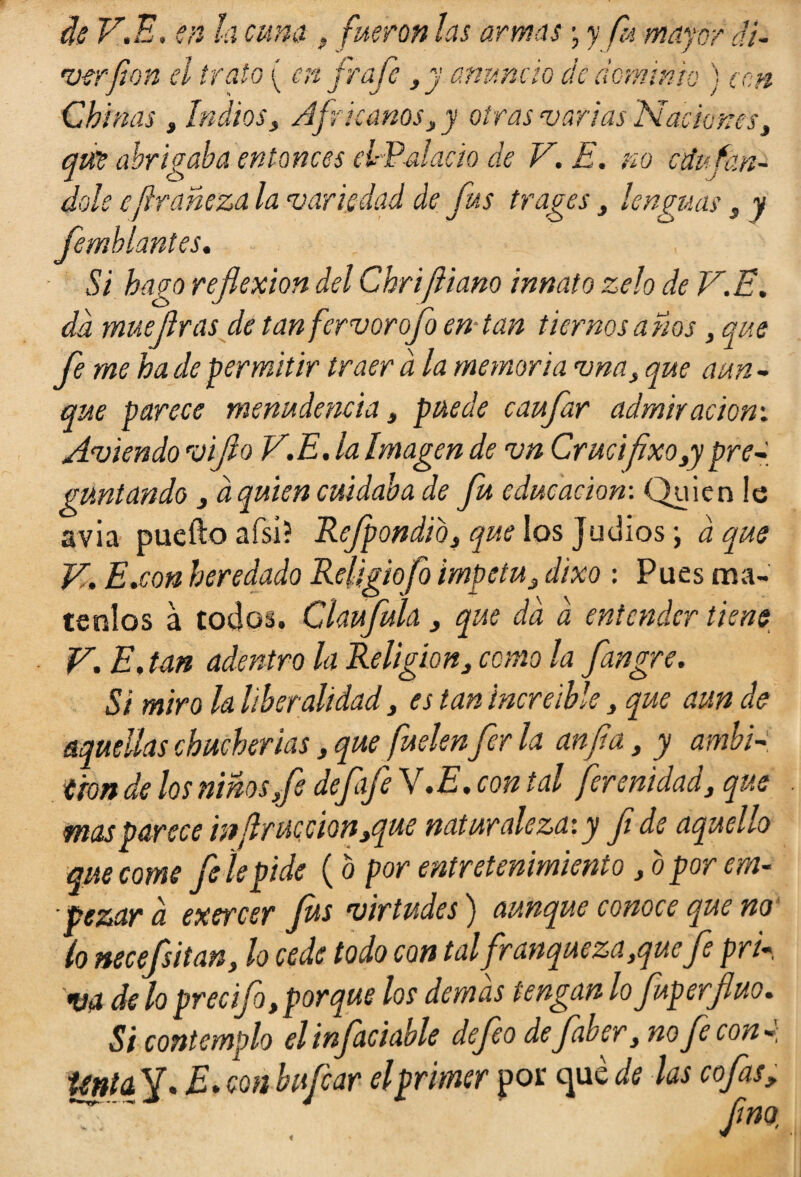 de V.E. en la cuna , fueron las armas ; y ſu mayor di-
verſion el trato ( en fraſe , y anuncio de dominio ) con
Chinas , Indios, Africanos, y otras varias Naciones,
que abrigaba entonces el Palacio de V. E. no cauſan-
dole eſtrañeza la variedad de ſus trages , lenguas , y
ſemblantes.
Si hago reflexion del Chriſtiano innato zelo de V.E.
dà mueſtras de tan fervoroſo en tan tiernos años , que
ſe me ha de permitir traer à la memoria vna, que aun-
que parece menudencia , puede cauſar admiracion:
Aviendo viſto V.E. la Imagen de vn Crucifixo,y pre-
guntando , à quien cuidaba de ſu educacion: Quien le
avia pueſto aſsi? Reſpondiò, que los Judios ; à que
V. E.con heredado Religioſo impetu, dixo : Pues ma-
tenlos à todos. Clauſula , que dà à entender tiene
V. E. tan adentro la Religion, como la ſangre.
Si miro la liberalidad , es tan increible , que aun de
aquellas chucherias , que ſuelen ſer la anſia , y ambi-
cion de los niños,ſe deſaſe V.E. con tal ſerenidad, que
mas parece inſtruccion,que naturaleza: y ſi de aquello
que come ſe le pide ( ò por entretenimiento , ò por em-
pezar à exercer ſus virtudes ) aunque conoce que no
lo neceſsitan, lo cede todo con tal franqueza,que ſe pri-
va de lo preciſo, porque los demàs tengan lo ſuperfluo.
Si contemplo el inſaciable deſeo de ſaber, no ſe con-
tenta V. E. con buſcar el primer por què de las coſas,
ſino